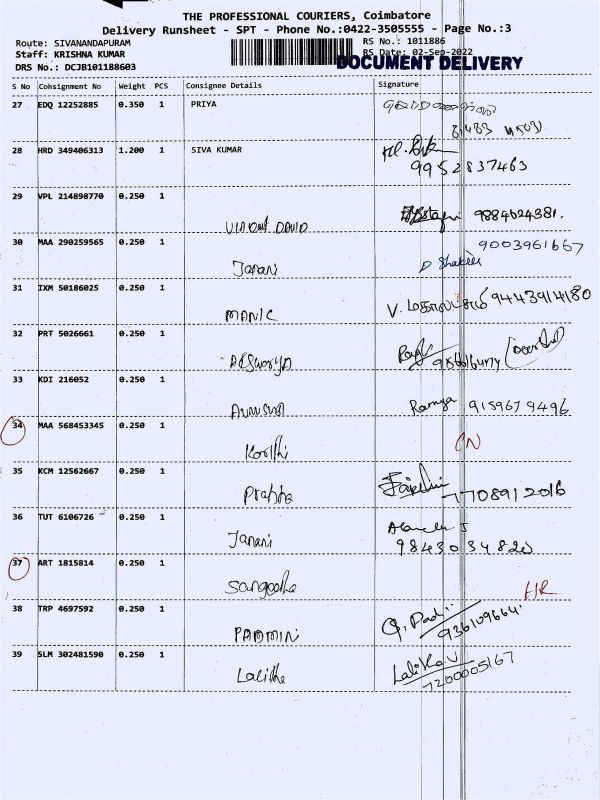 THE PROFESSIONAL COURIERS, Coimbatore
Delivery Runsheet - SPT - Phone No.:0422-3505555 - Page No.:3
Route: SIVANANDAPURAM RS No.: 1011886
Staff: KRISHNA KUMAR RS Date: 02-Sep-2022
DRS No.: DCJB101188603 DOCUMENT DELIVERY
S No Cohsignment No Weight PCS Consignee Details Signature
27 EDQ 12252885 0.350 1 PRIYA
28 HRD 349406313 1.200 1 SIVA KUMAR
9952837463
29 VPL 214898770 0.250 1
DAVID 9884624381.
30 MAA 290259565 0.250 1 9003961667
Janani D Shakila
31 IXM 50186025 0.250 1 V. 9443914180
MANIC
32 PRT 5026661 0.250 1
33 KDI 216052 0.250 1
Ramya 9159679496
34 MAA 568453345 0.250 1
Keerthi
35 KCM 12562667 0.250 1
Prabha 7708912016
36 TUT 6106726 0.250 1
Janani 9843034820
37 ART 1815814 0.250 1
Sangeetha
38 TRP 4697592 0.250 1
PADMINI 9361096641
39 SLM 302481590 0.250 1 Lalitha V
Lalitha 7200005167